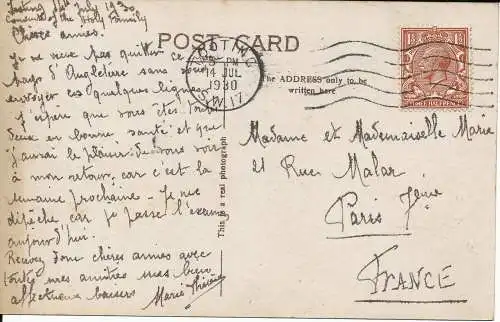 Tooting 14th July 1930
Convent of the Holy Family
Chères amies.
Je ne veux pas quitter ce
pays d'Angleterre sans vous
envoyer ces quelques lignes
J'espère que vous êtes toutes
deux en bonne santé et que
j'aurai le plaisir de vous voir
à mon retour, car c'est la
semaine prochaine - Je me
dépêche car je passe l'examen
aujourd'hui.
Recevez donc chères amies avec
toutes mes amitiés mes bien
affectueux baisers
Marie Thérèse
POST CARD
The ADDRESS only to be
written here
This is a real photograph
TOOTING
5 PM
14 JUL
1930
S.W.17
THREE HALFPENCE
Madame et Mademoiselle Marie
21 Rue Malar
Paris 7ème
FRANCE